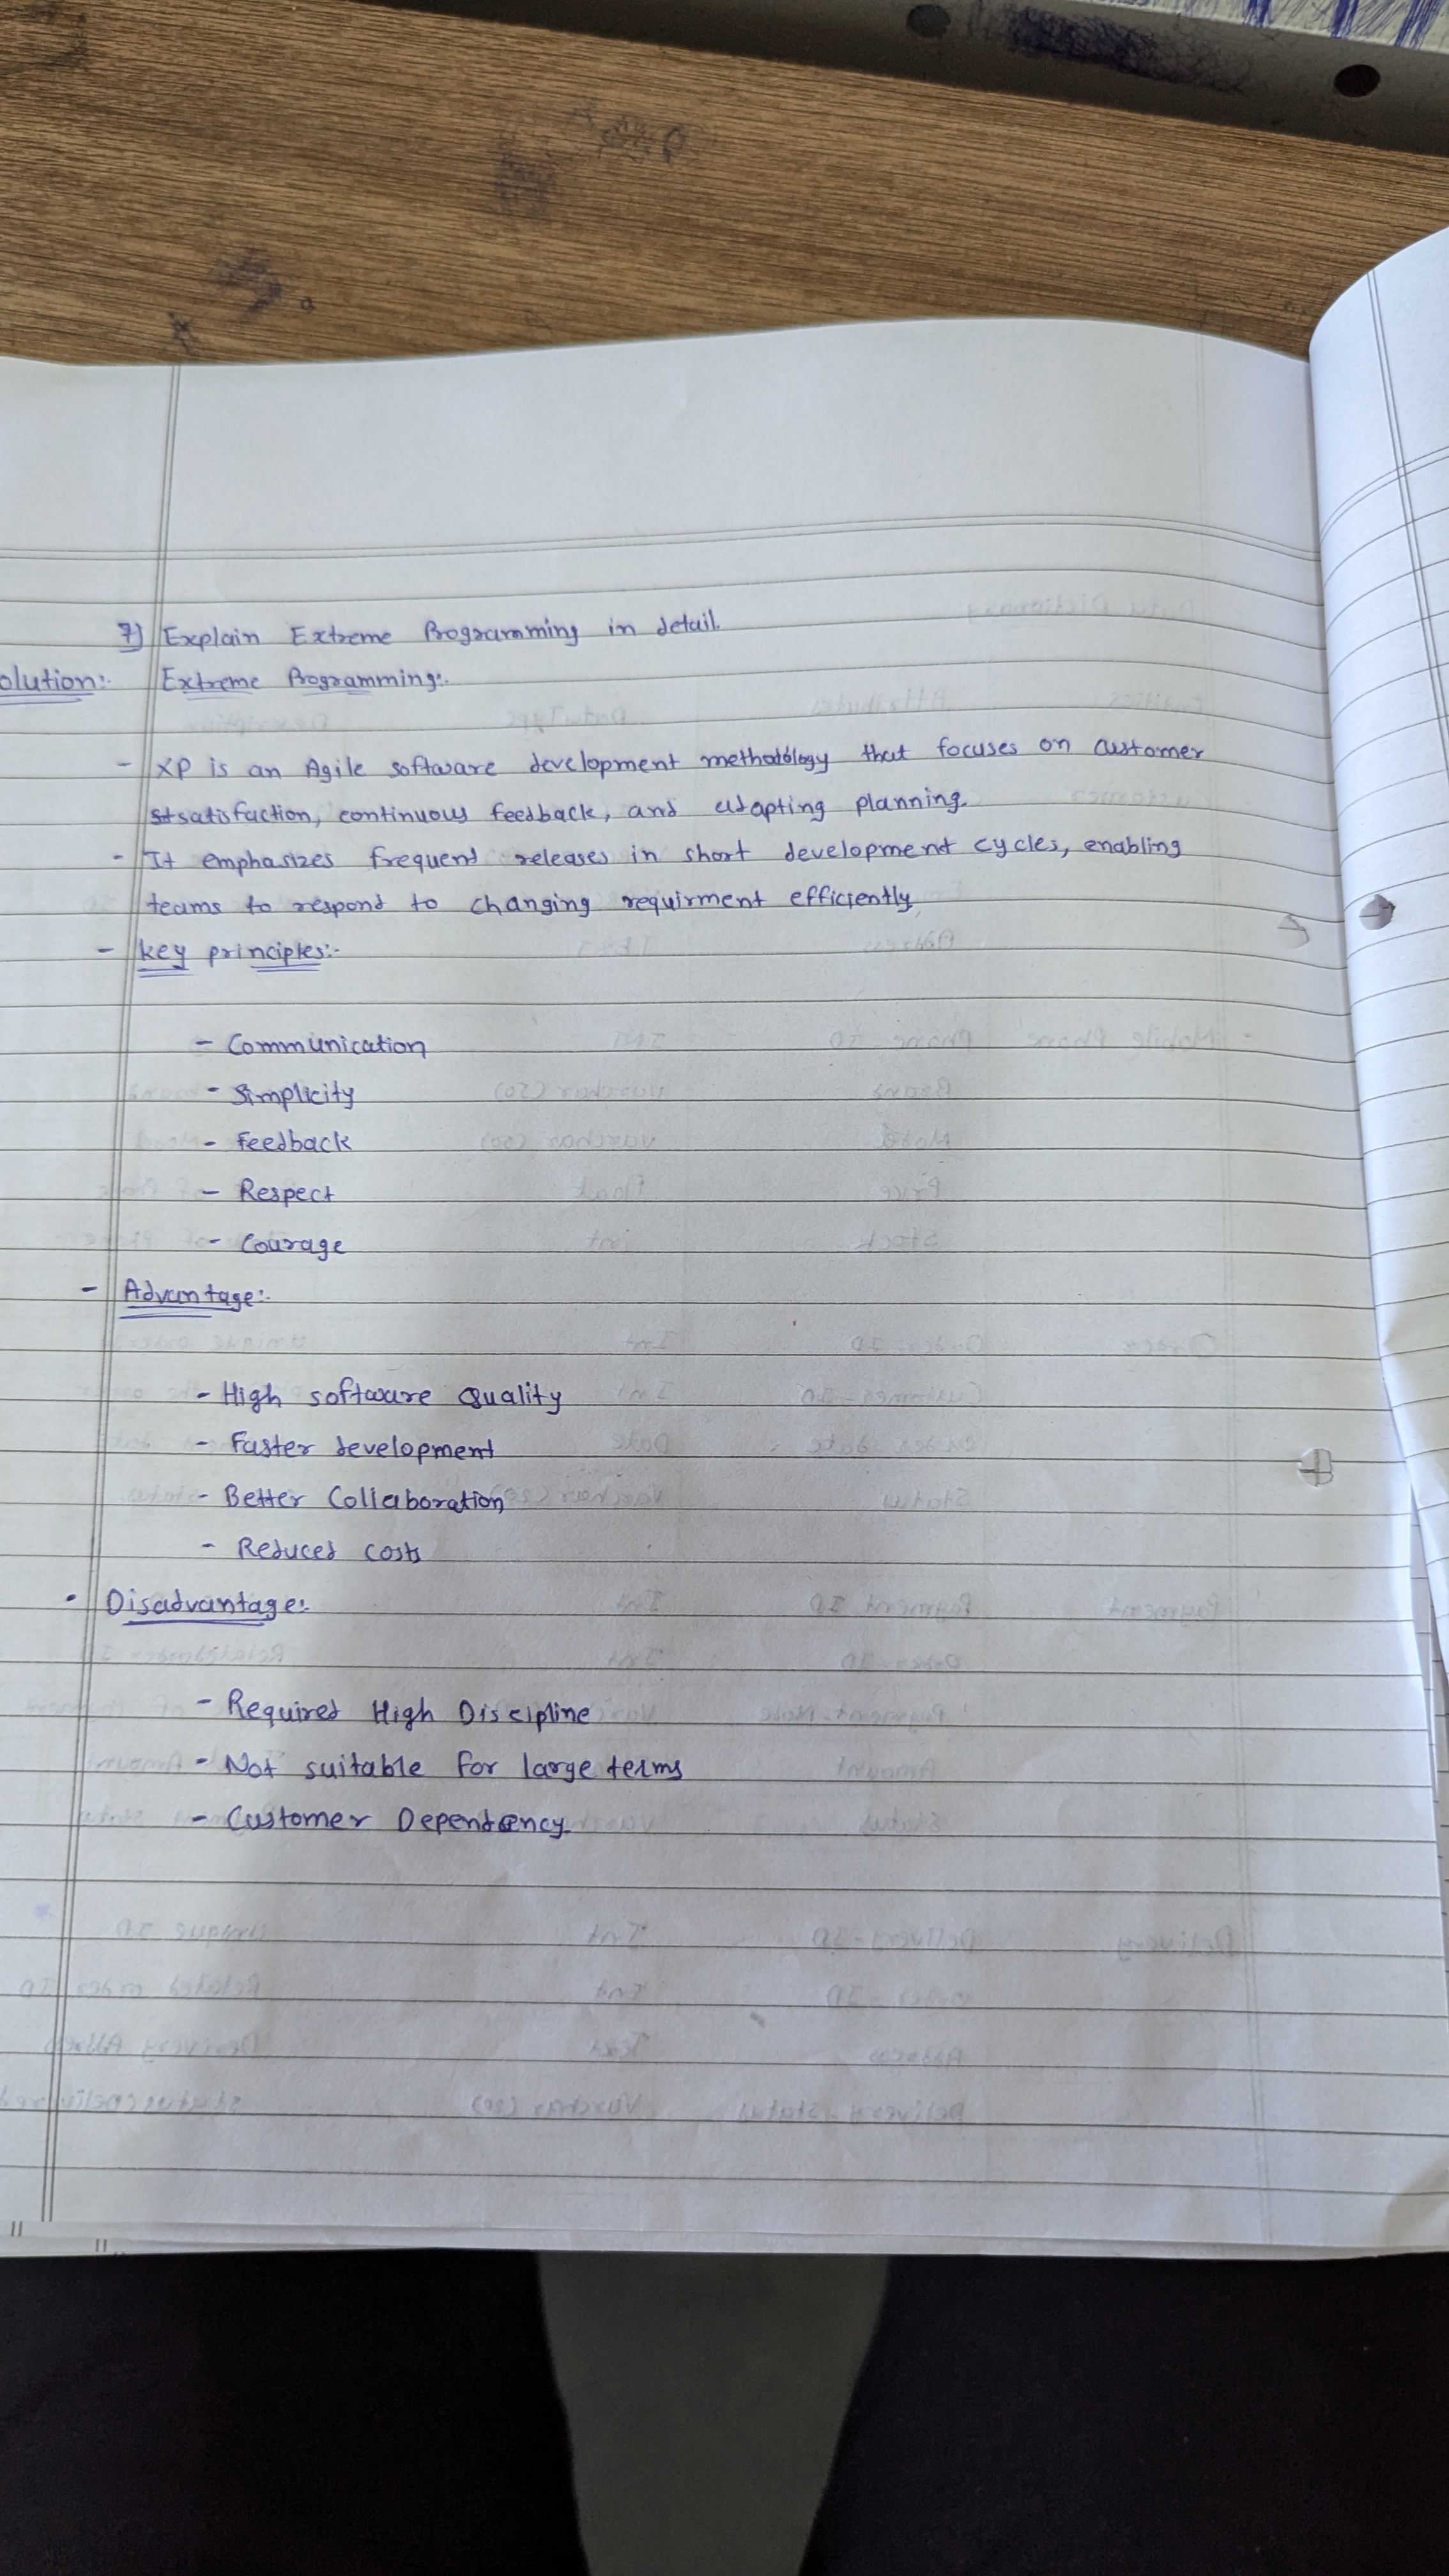 7) Explain Extreme Programming in detail.
olution:- Extreme Programming:-
- XP is an Agile software development methodology that focuses on customer
satisfaction, continuous feedback, and adapting planning.
- It emphasizes frequent releases in short development cycles, enabling
teams to respond to changing requirment efficiently
- key principles:-
- Communication
- Simplicity
- Feedback
- Respect
- Courage
- Advantage:-
- High software Quality
- Faster development
- Better Collaboration
- Reduced costs
• Disadvantage:-
- Required High Discipline
- Not suitable for large terms
- Customer Dependency